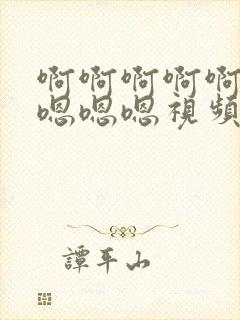 啊啊啊啊啊
嗯嗯嗯視頻
譚平山